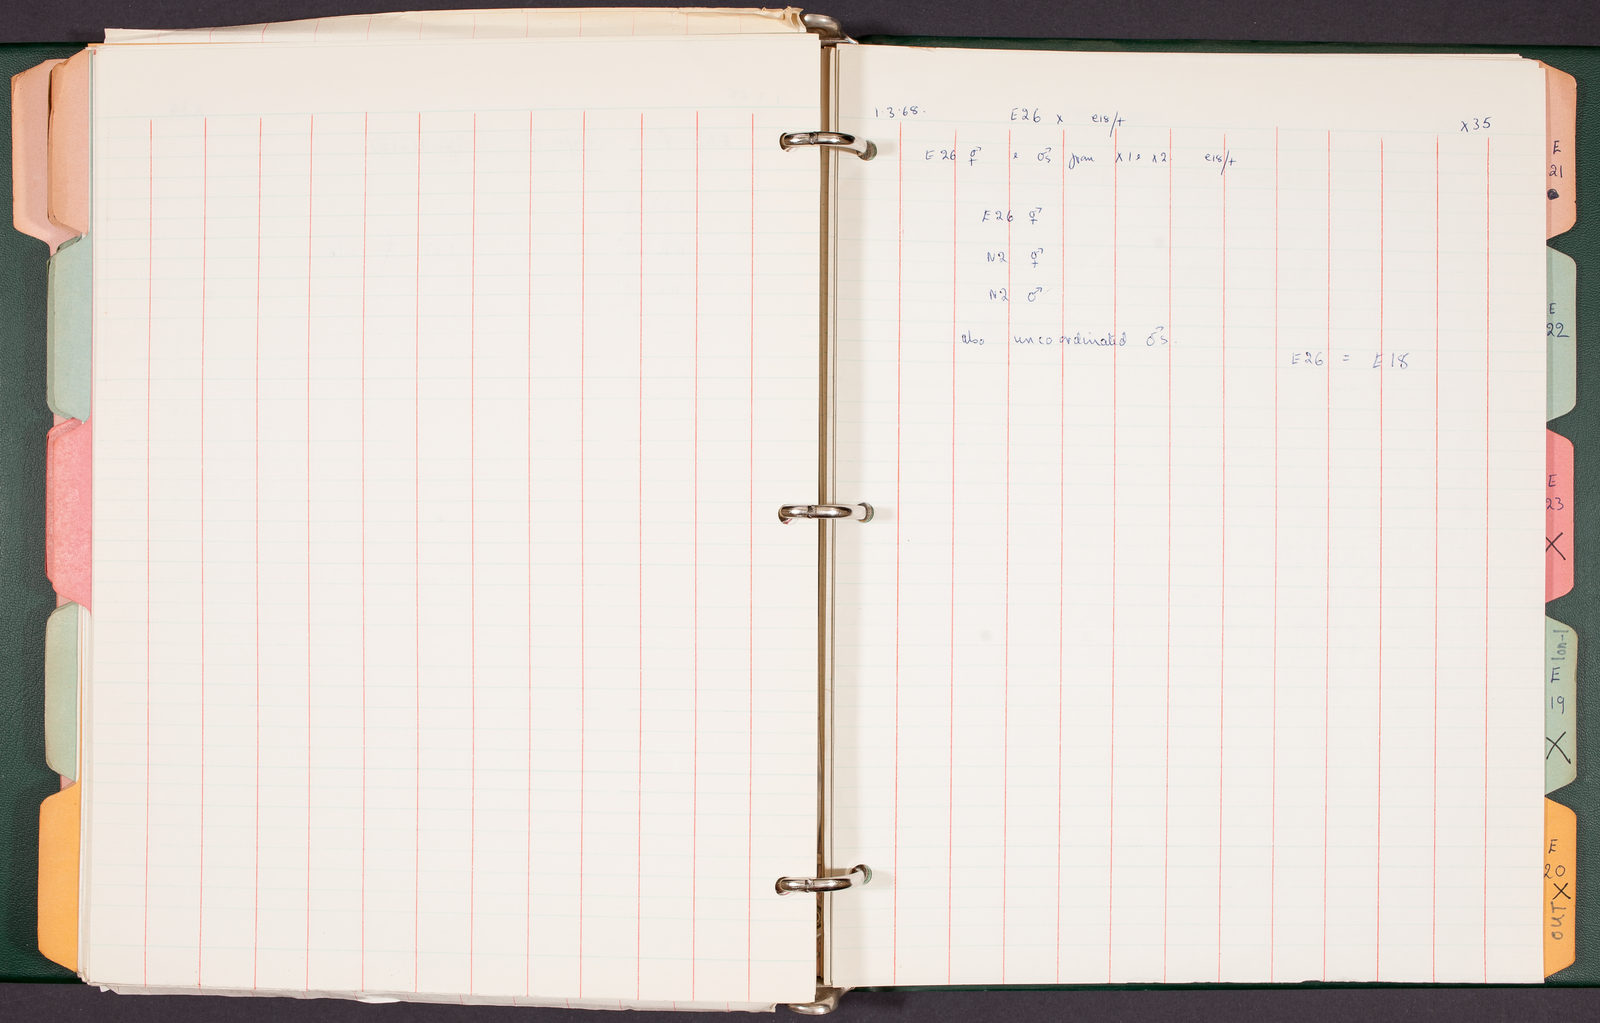 1.3.68. E26 x e18/+ X35
E26 ⚥ x ♂s from X1 & X2 e18/+
E26 ⚥
N2 ⚥
N2 ♂
also uncoordinated ♂s.
E26 = E18
E
21
E
22
E
23
X
lon-1
E
19
X
E
20
X
OUT